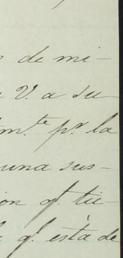 de mi-
V. a su
m.te pr. la
una sus-
ion q.e tie-
q.e está de